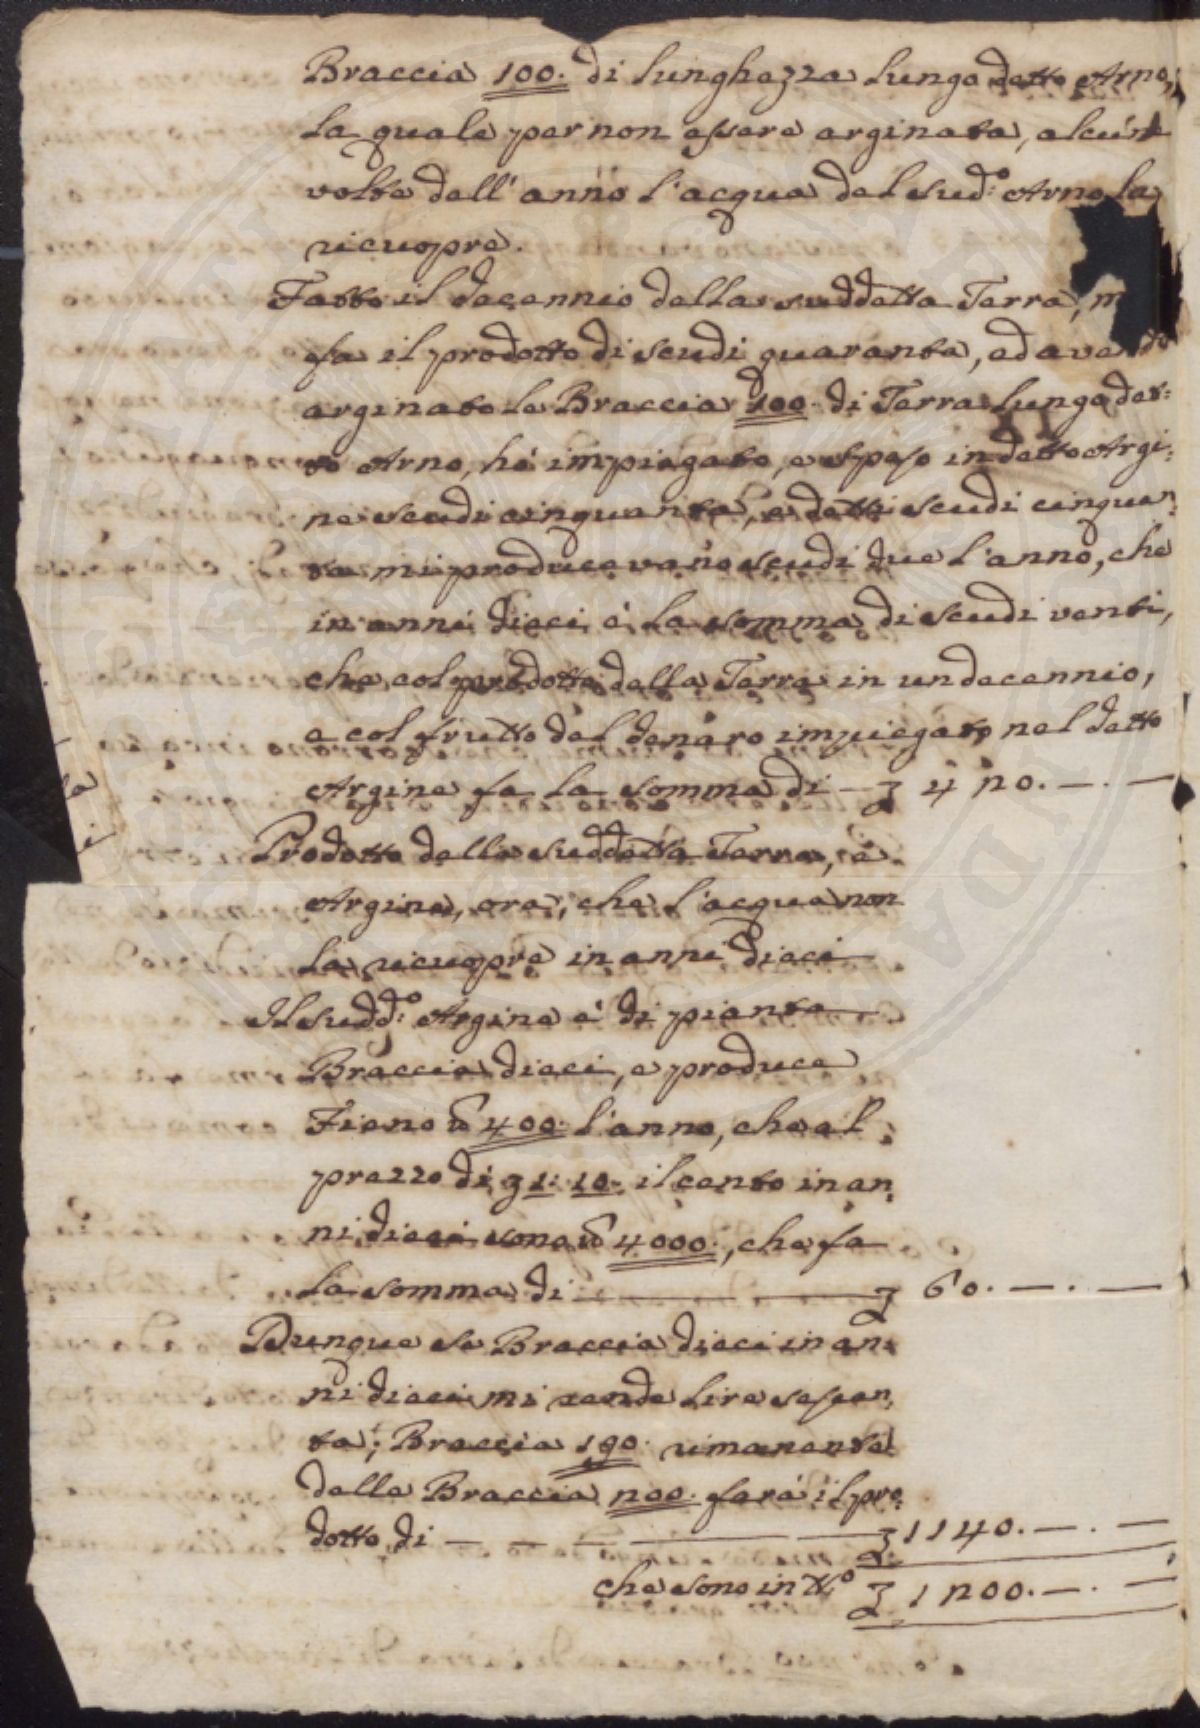 Braccia 100. di lunghezza lungo detto Arno,
la quale per non essere arginata, alcune
volte dell'anno l'acqua del Sud:º Arno la
ricuopre.
Fatto il decennio della suddetta Terra, m
fa il prodotto di scudi quaranta, ed avendo
arginato le Braccia 100. di Terra lungo det:
to Arno, hò impiegato, e speso in detto Argi:
ne scudi cinquanta, e detti scudi cinquan:
ta mi producevano scudi due l'anno, che
in anni dieci è la somma di scudi venti,
che col prodotto della Terra in un decennio,
e col frutto del denaro impiegato nel detto
Argine fa la somma di — ʒ 420. —. —
Prodotto della suddetta Terra, è
Argine, ora, che l'acqua non
la ricuopre in anni dieci
Il Sudd:º Argine è di pianta
Braccia dieci, e produce
Fieno 400. l'anno, che al
prezzo di ʒ 1: 10. il cento in an:
ni dieci sono 4000., che fa
la somma di — ʒ 60. —. —
Dunque se Braccia dieci in an:
ni dieci mi rende lire sessan:
ta; Braccia 190. rimanente
delle Braccia 200. farà il pro:
dotto di — — — — ʒ 1140. —. —
che sono in tt:º ʒ 1200. —. —
la
i